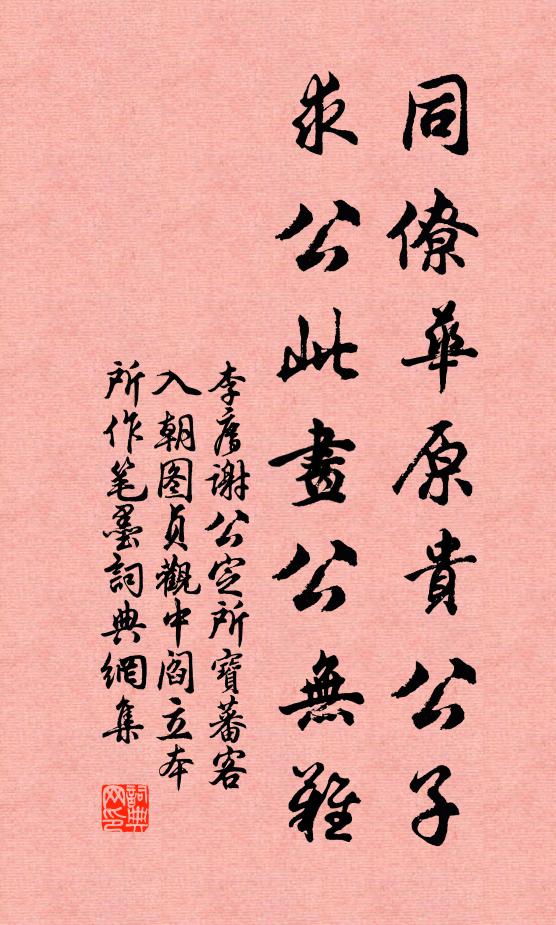 同僚華原貴公子
求公此畫公無難
李廌謝公定所寶蕃客
入朝图貞觀中阎立本
所作笔墨詞典網集
詞典网印